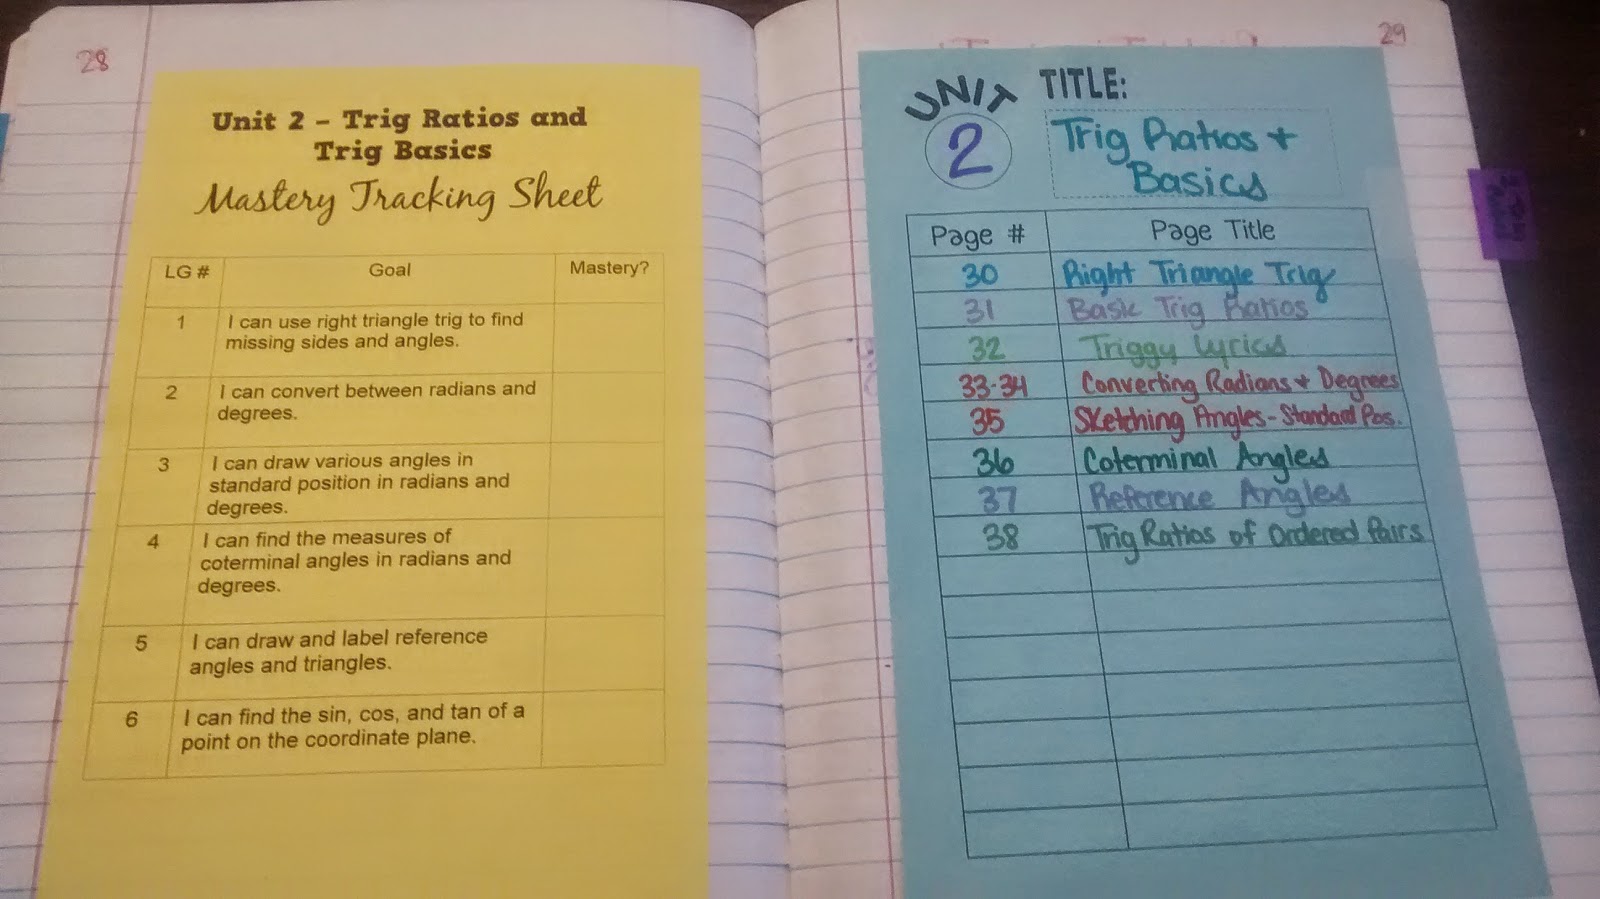 28
Unit 2 – Trig Ratios and
Trig Basics
Mastery Tracking Sheet
LG # Goal Mastery?
1 I can use right triangle trig to find
missing sides and angles.
2 I can convert between radians and
degrees.
3 I can draw various angles in
standard position in radians and
degrees.
4 I can find the measures of
coterminal angles in radians and
degrees.
5 I can draw and label reference
angles and triangles.
6 I can find the sin, cos, and tan of a
point on the coordinate plane.
29
UNIT TITLE:
2 Trig Ratios +
Basics
Page # Page Title
30 Right Triangle Trig
31 Basic Trig Ratios
32 Triggy Lyrics
33-34 Converting Radians + Degrees
35 Sketching Angles - Standard Pos.
36 Coterminal Angles
37 Reference Angles
38 Trig Ratios of Ordered Pairs